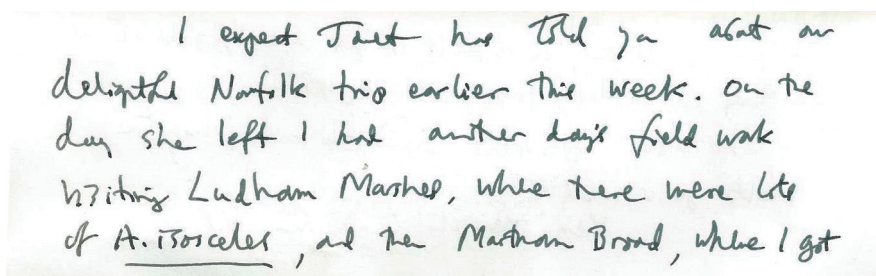 I expect Janet has told you about our
delightful Norfolk trip earlier this week. On the
day she left I had another day's field work
visiting Ludham Marshes, where there were lots
of A. isosceles, and then Martham Broad, where I got